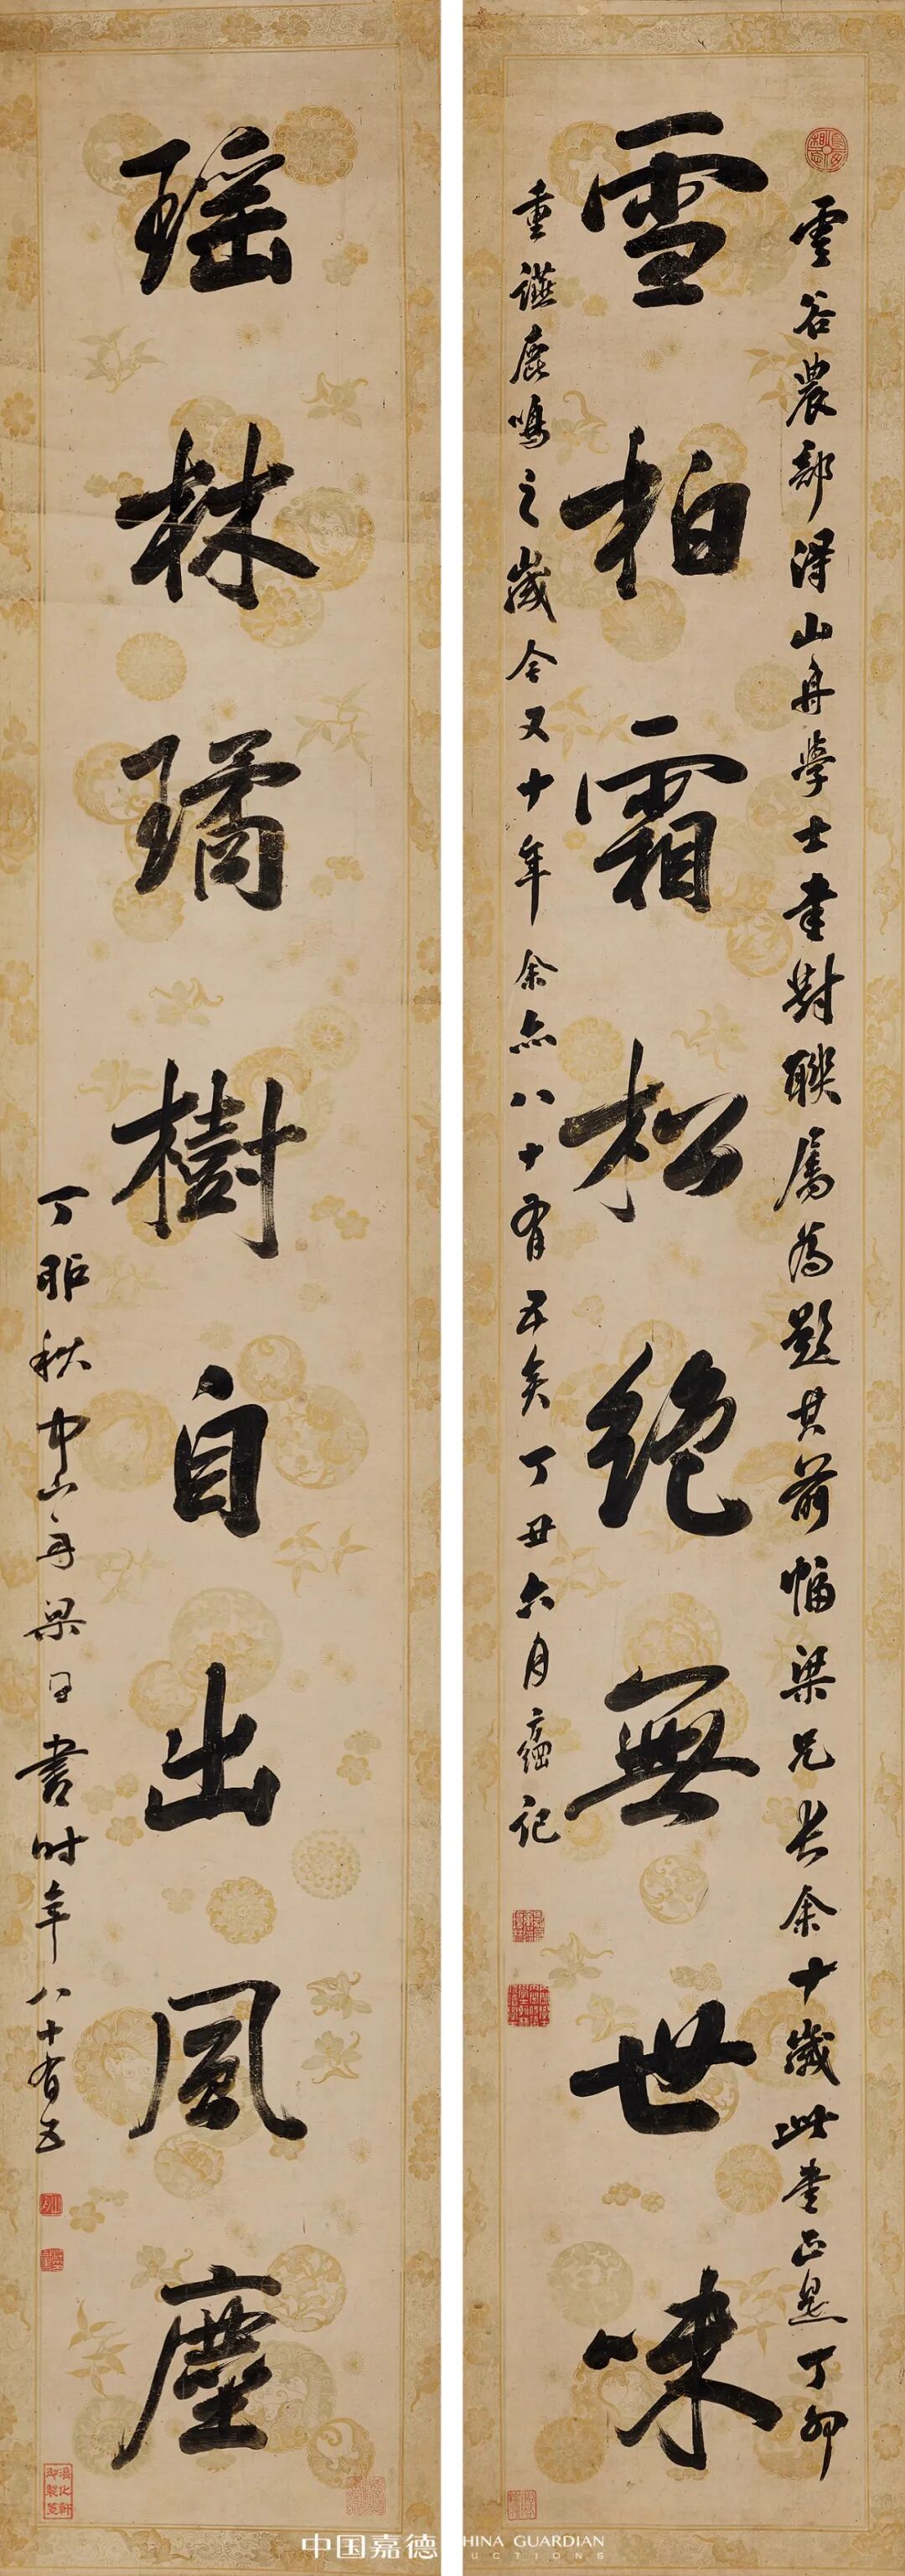 雲谷農部得山舟學士書對聯屬為題其前幅梁兄長余十歲此書正是丁卯
雪柏霜松絶無世味
重讌鹿鳴之歲今又十年余亦八十有五矣丁丑六月方綱記
瑶林璚樹自出風塵
丁卯秋中山舟梁同書時年八十有五
淳化軒
御製箋
中国嘉德
CHINA GUARDIAN
AUCTIONS